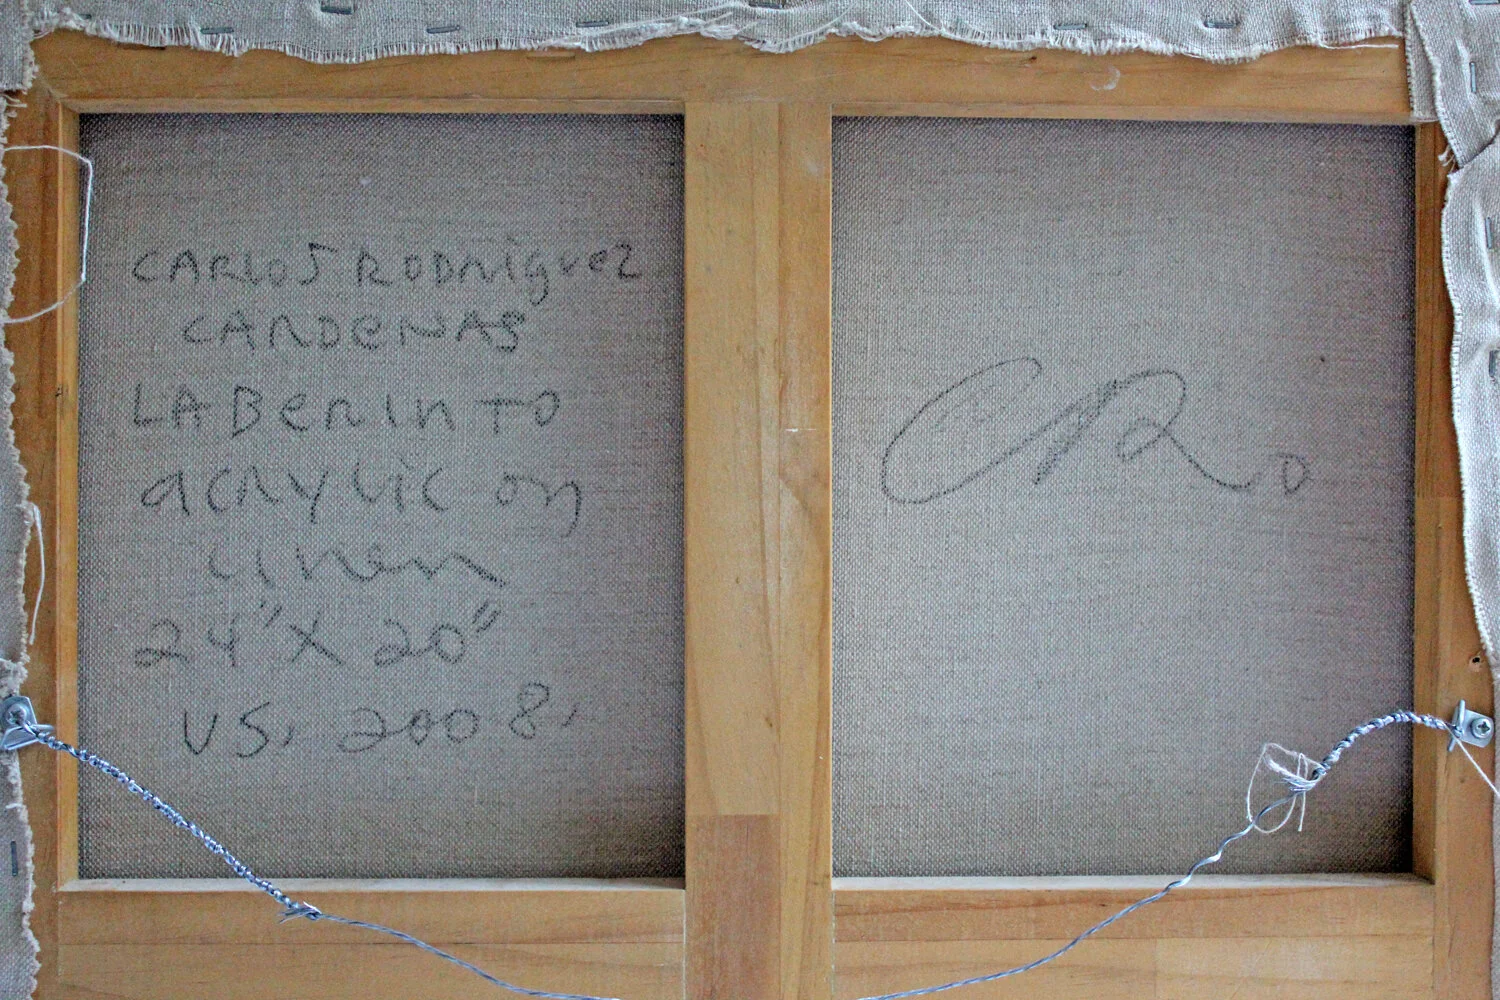 CARLOS RODRIguez
CARDENAS
LABERINTO
acrylic on
linen
24" X 20"
US, 2008,